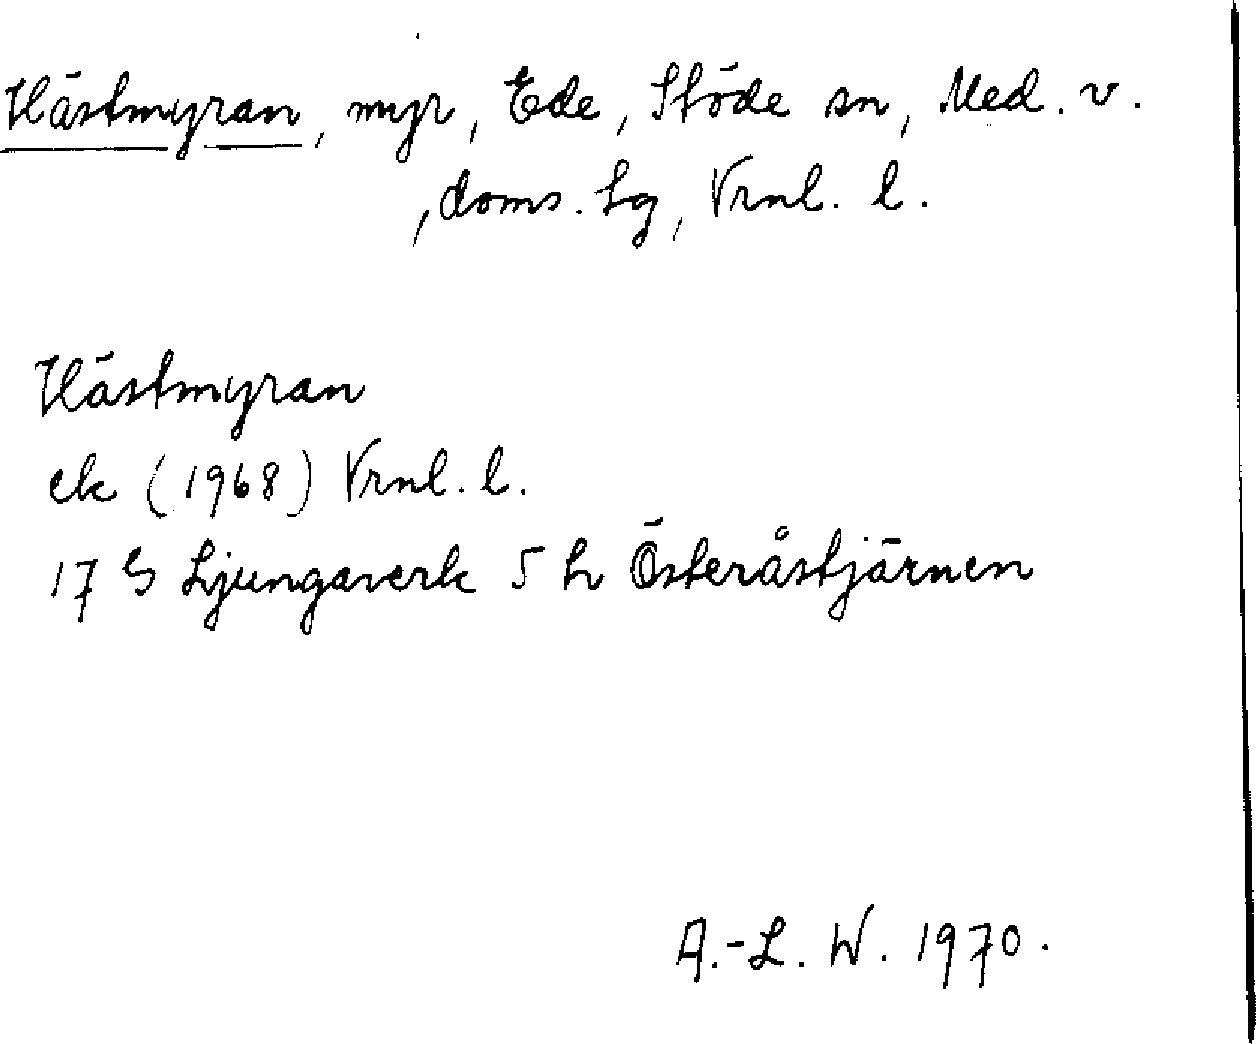 Hästmyran, myr, Ede, Stöde sn, Med. v.
, doms. lg, Vrnl. l.
Hästmyran
ek (1968) Vrnl. l.
17 G Ljungaverk 5 h Österåstjärnen
A.-L. W. 1970.